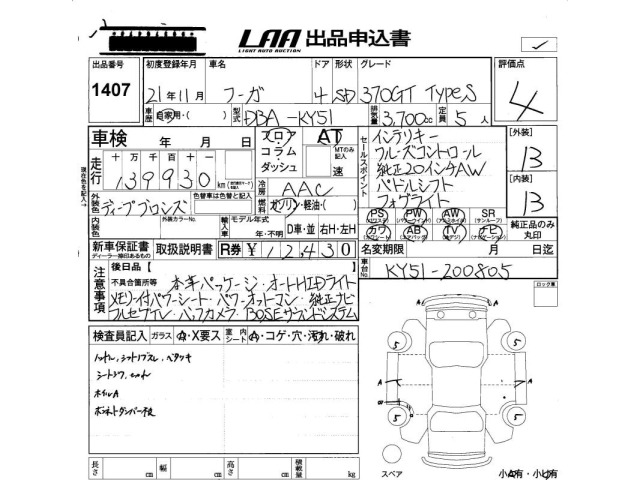 LAA 出品申込書
LIGHT AUTO AUCTION
出品番号 初度登録年月 車名 ドア 形状 グレード 評価点
1407 21年11月 フーガ 4 SD 370GT TypeS 4
車歴 自家用・( ) 型式 DBA-KY51 排気量 3,700cc 定員 5人
車検 年 月 日 フロア コラム ダッシュ AT MTのみ記入 速
走行 十万 万 千 百 十
139930 km
セールスポイント
インテリキー
クルーズコントロール
純正20インチAW
パドルシフト
フォグライト
[外装] 13
[内装] 13
冷房 AAC
外装色 ディープブロンズ 色替車は色替と記入
燃料 ガソリン・軽油・( )
内装色 外装カラーNo. 輸入車 モデル年式 年・不明 D車・並 右H・左H
PS PW AW SR
カワ AB TV ナビ
純正品のみ丸印
新車保証書 取扱説明書 R券 ¥12,430
ディーラー捺印あるもの
名変期限 月 日迄
車台No. KY51-200805
注意事項
後日品【 】
不具合箇所等 本革パッケージ・オートHIDライト
メモリー付パワーシート・パワーオットマン・純正ナビ
フルセグTV・バックカメラ・BOSEサウンドシステム
検査員記入 ガラス A・X要ス 室内シート A・コゲ・穴・汚れ・破れ
シートスワ
ホイルA
ボンネットダンパー
5 5
A A
5 5
長さ cm 幅 cm 高さ cm 積載量 kg
スペア
小A有・小U有